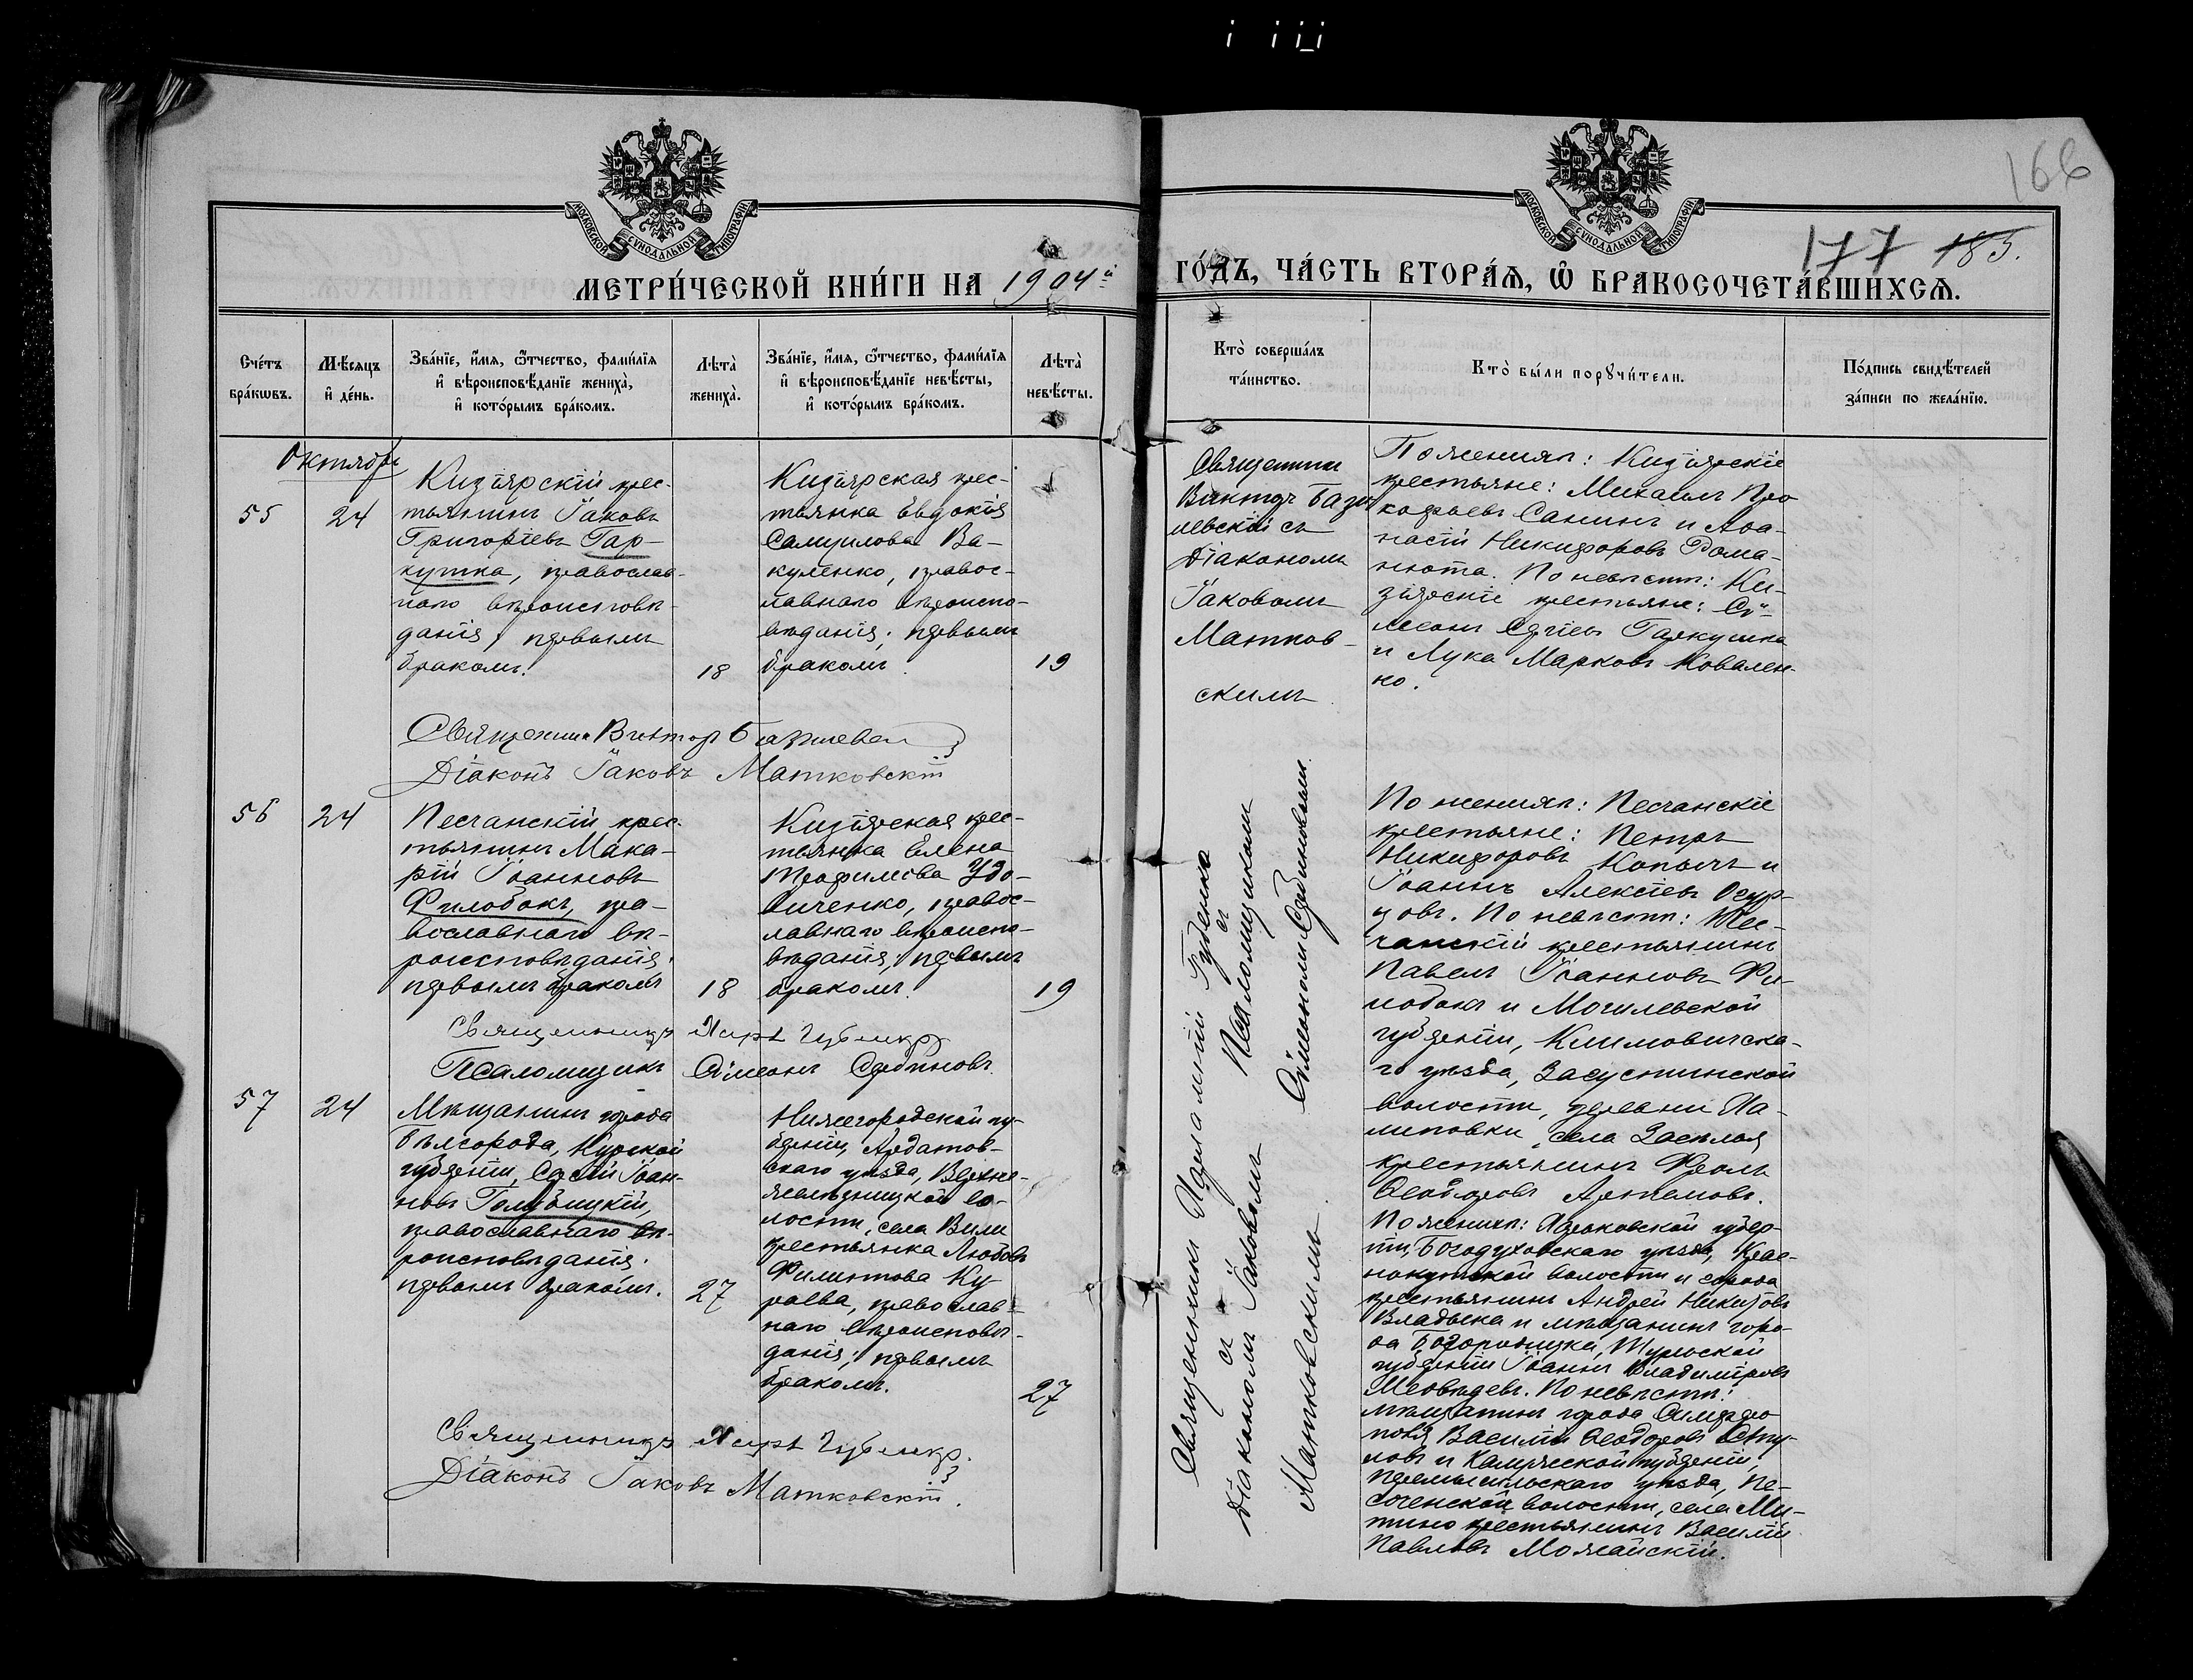 166
МОСКОВСКОЙ СУНОДАЛЬНОЙ ТИПОГРАФІИ
МОСКОВСКОЙ СУНОДАЛЬНОЙ ТИПОГРАФІИ
177 183.
МЕТРИ́ЧЕСКОЙ КНИ́ГИ НА 1904й
ГО́ДЪ, ЧА́СТЬ ВТОРА́Я, Ѽ БРАКОСОЧЕТА́ВШИХСѦ.
Сче́тъ
бра́кѡвъ.
Мѣ́сяцъ
и҆ де́нь.
Зва́нїе, и҆́мя, ѻ҆́тчество, фами́лїя
и҆ вѣроисповѣ́данїе жениха̀,
и҆ кото́рымъ бра́комъ.
Лѣ́та
жениха̀.
Зва́нїе, и҆́мя, ѻ҆́тчество, фами́лїя
и҆ вѣроисповѣ́данїе невѣ́сты,
и҆ кото́рымъ бра́комъ.
Лѣ́та
невѣ́сты.
Кто̀ соверша́лъ
та́инство.
Кто̀ бы́ли порꙋчи́тели.
По́дпись свидѣ́телей
за́писи по жела́нїю.
Октябрь
55
24
Кизіярскій крес-
тьянинъ Іаковъ
Григоріевъ Гар-
кушка, православ-
наго вѣроисповѣ-
данія; первымъ
бракомъ.
18
Кизіярская крес-
тьянка Евдокія
Самуилова Ва-
куленко, правос-
лавнаго вѣроиспо-
вѣданія; первымъ
бракомъ.
19
Священник
Викторъ Бази
левскій съ
Діакономъ
Іаковомъ
Матков-
скимъ
По женихѣ: Кизіярскіе
крестьяне: Михаилъ Про
кофьевъ Санинъ и Аѳа-
насій Никифоровъ Рома-
нюта. По невѣстѣ: Ки-
зіярскіе крестьяне: Сѵ-
меонъ Сергіевъ Гаркушка
и Лука Марковъ Ковален-
ко.
Священник Виктор Базилевск
Діаконъ Іаковъ Матковскій
56
24
Песчанскій крес-
тьянинъ Мака-
рій Іоанновъ
Филобокъ, пра-
вославнаго вѣ-
роисповѣданія;
первымъ бракомъ
18
Кизіярская крес-
тьянка Елена
Трофимова Удо-
виченко, правос-
лавнаго вѣроиспо-
вѣданія; первымъ
бракомъ.
19
Священникъ Гуденко
съ Псаломщикомъ
Сѵмеономъ Сербиновымъ.
По женихѣ: Песчанскіе
крестьяне: Петръ
Никифоровъ Копычъ и
Іоаннъ Алексіевъ Огур-
цовъ. По невѣстѣ: Пес-
чанскій крестьянинъ
Павелъ Іоанновъ Фи-
лобокъ и Могилевской
губерніи, Климовичска-
го уѣзда, Засустинской
волости, деревни Ка-
линовки, села Заселья
крестьянинъ Фролъ
Ѳеодоровъ Артемовъ.
Священникъ
Псаломщикъ Сѵмеонъ Сербиновъ.
57
24
Мѣщанинъ города
Бѣлгорода, Курской
губерніи, Сергій Іоан-
новъ Голубицкій,
православнаго вѣ-
роисповѣданія;
первымъ бракомъ.
27
Нижегородской гу-
берніи, Ардатов-
скаго уѣзда, Верхне-
желѣзницкой во-
лости, села Вили
крестьянка Любовь
Филиппова Ку
раева, православ-
наго вѣроисповѣ-
данія; первымъ
бракомъ.
27
Священникъ
съ
Діакономъ Іаковомъ
Матковскимъ.
По женихѣ: Харьковской губер-
ніи, Богодуховскаго уѣзда, Крас-
нокутской волости и города
крестьянинъ Андрей Никитовъ
Владыка и мѣщанинъ горо-
да Богородицка, Тульской
губерніи Іоаннъ Владиміровъ
Медвѣдевъ. По невѣстѣ:
мѣщанинъ города Симферо
поля Василій Ѳеодоровъ
и Калужской губерніи,
Перемышльскаго уѣзда, Пе-
соченской волости, села Ми-
тино крестьянинъ Василій
Павловъ Можайскій.
Священникъ
Діаконъ Іаковъ Матковскій.